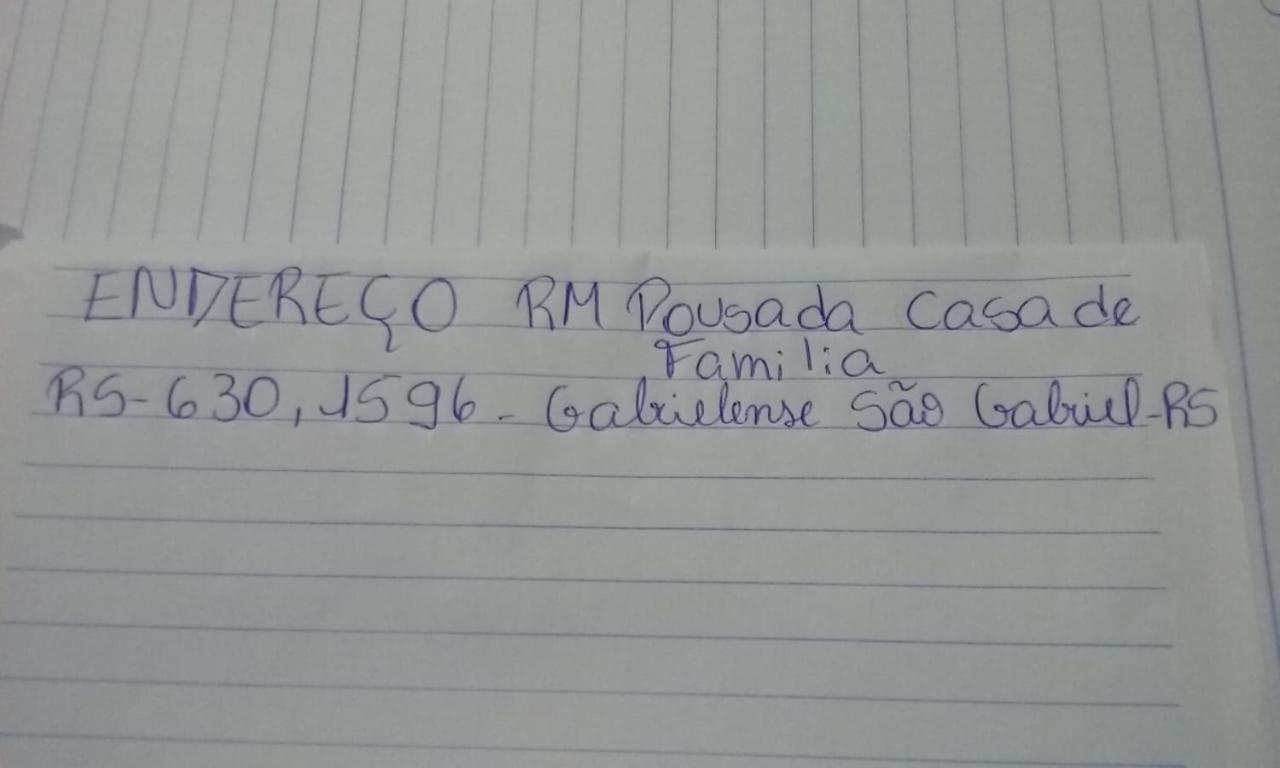 ENDEREÇO RM Pousada Casa de
Familia
RS-630, 1596 - Gabrielense São Gabriel-RS